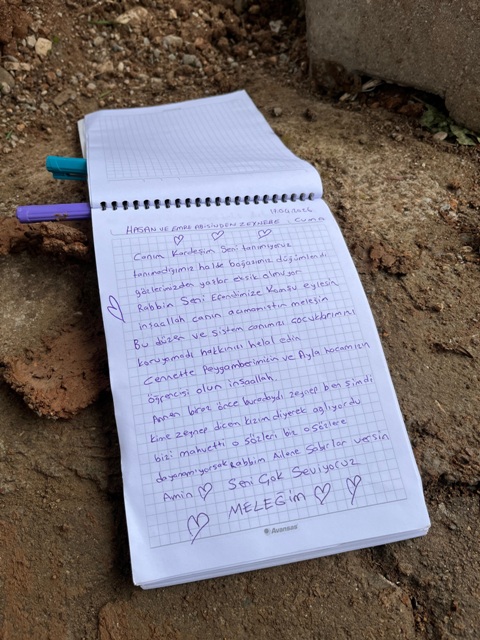 HASAN VE EMRE ABİSİNDEN ZEYNEBE : Cuma
Canım Kardeşim Seni tanımıyoruz
tanımadığımız halde boğazımız düğümlendi
gözlerimizden yaşlar eksik olmuyor
Rabbim Seni Efendimize Komşu eylesin
inşaallah canın acımamıştır meleğim
Bu düzen ve sistem canımızı, çocuklarımızı
koruyamadı hakkınızı helal edin
Cennette Peygamberimizin ve Ayla hocamızın
öğrencisi olun inşaallah.
Annen biraz önce buradaydı zeynep ben şimdi
kime zeynep dicem kızım diyerek ağlıyordu
bizi mahvetti o sözleri biz o sözlere
dayanamıyorsak Rabbim Ailene Sabırlar versin
Amin Seni Çok Seviyoruz
MELEĞİM
Avansas